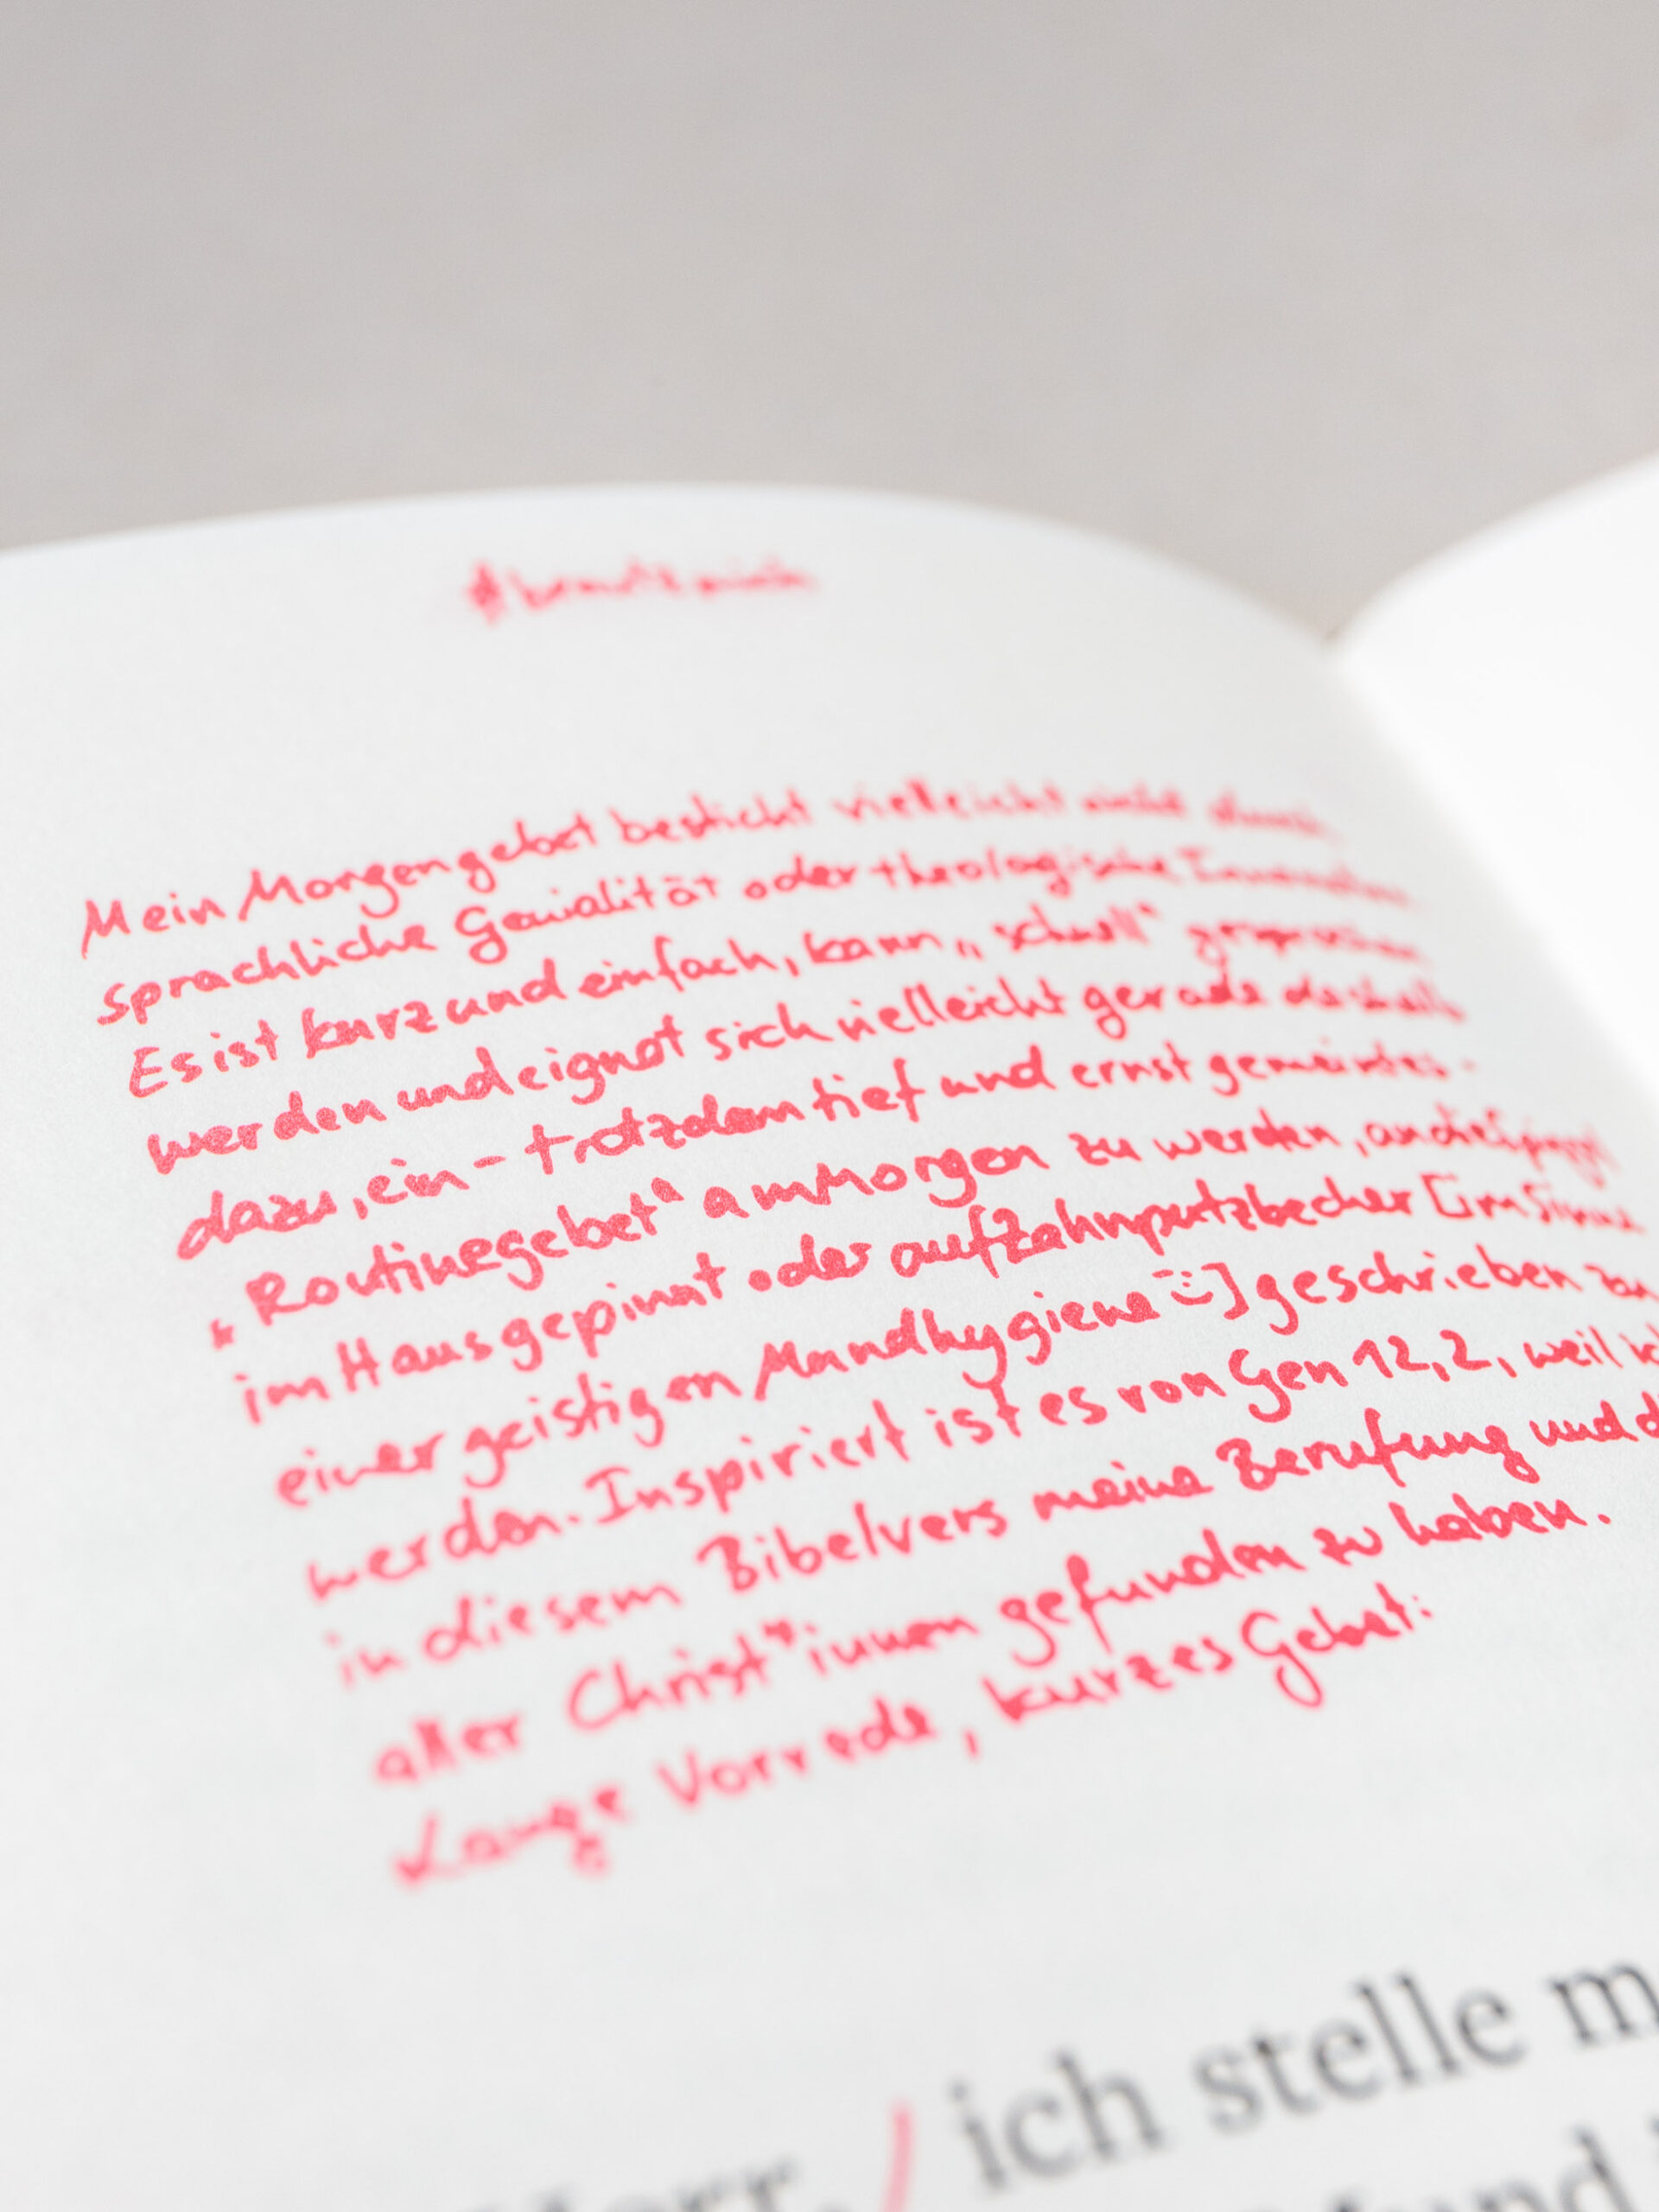 Mein Morgengebet besticht vielleicht nicht durch
sprachliche Genialität oder theologische
Es ist kurz und einfach, kann „schnell“ gesprochen
werden und eignet sich vielleicht gerade deshalb
dazu, ein - trotzdem tief und ernst gemeintes -
„Routinegebet“ am Morgen zu werden, an die
im Haus gepinnt oder auf Zahnputzbecher [im Sinne
einer geistigen Mundhygiene :)] geschrieben zu
werden. Inspiriert ist es von Gen 12,2, weil ic
in diesem Bibelvers meine Berufung und d
aller Christ*innen gefunden zu haben.
Lange Vorrede, kurzes Gebet:
ich stelle m